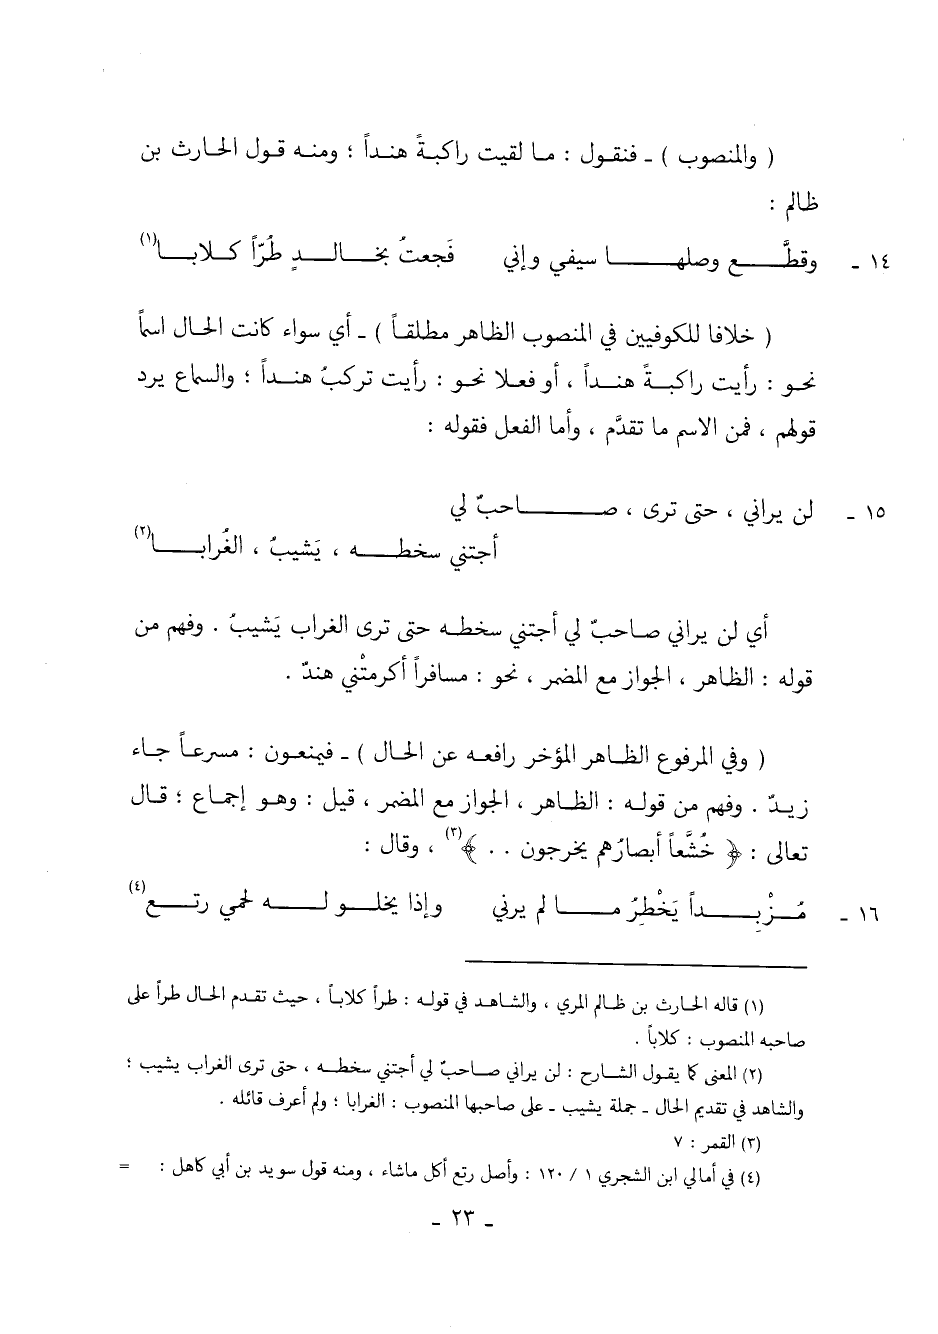 ( والمنصوب ) ـ فنقول : ما لقيت راكبةً هنداً ؛ ومنه قول الحارث بن
ظالم :
١٤ ـ وقطَّع وصلها سيفي وإني فَجعتُ بخالدٍ طُرّاً كلابا(١)
( خلافا للكوفيين في المنصوب الظاهر مطلقاً ) ـ أي سواء كانت الحال اسماً
نحو : رأيت راكبةً هنداً ، أو فعلا نحو : رأيت تركبُ هنداً ؛ والسماع يرد
قولهم ، فمن الاسم ما تقدَّم ، وأما الفعل فقوله :
١٥ ـ لن يراني ، حتى ترى ، صاحبٌ لي
أجتني سخطه ، يَشيبُ ، الغُرابا(٢)
أي لن يراني صاحبٌ لي أجتني سخطه حتى ترى الغراب يَشيبُ . وفهم من
قوله : الظاهر ، الجواز مع المضمر ، نحو : مسافراً أكرمتْني هندٌ .
( وفي المرفوع الظاهر المؤخر رافعه عن الحال ) ـ فيمنعون : مسرعاً جاء
زيدٌ . وفهم من قوله : الظاهر ، الجواز مع المضمر ، قيل : وهو إجماع ؛ قال
تعالى : ﴿ خُشَّعاً أبصارُهم يخرجون . . ﴾(٣) ، وقال :
١٦ ـ مُزْبِداً يَخْطِرُ ما لم يرني وإذا يخلو له لحمي رتع(٤)
(١) قاله الحارث بن ظالم المري ، والشاهد في قوله : طراً كلاباً ، حيث تقدم الحال طراً على
صاحبه المنصوب : كلاباً .
(٢) المعنى كما يقول الشارح : لن يراني صاحبٌ لي أجتني سخطه ، حتى ترى الغراب يشيب ؛
والشاهد في تقديم الحال ـ جملة يشيب ـ على صاحبها المنصوب : الغرابا ؛ ولم أعرف قائله .
(٣) القمر : ٧
(٤) في أمالي ابن الشجري ١ / ١٢٠ : وأصل رتع أكل ماشاء ، ومنه قول سويد بن أبي كاهل : =
ـ ٢٣ ـ